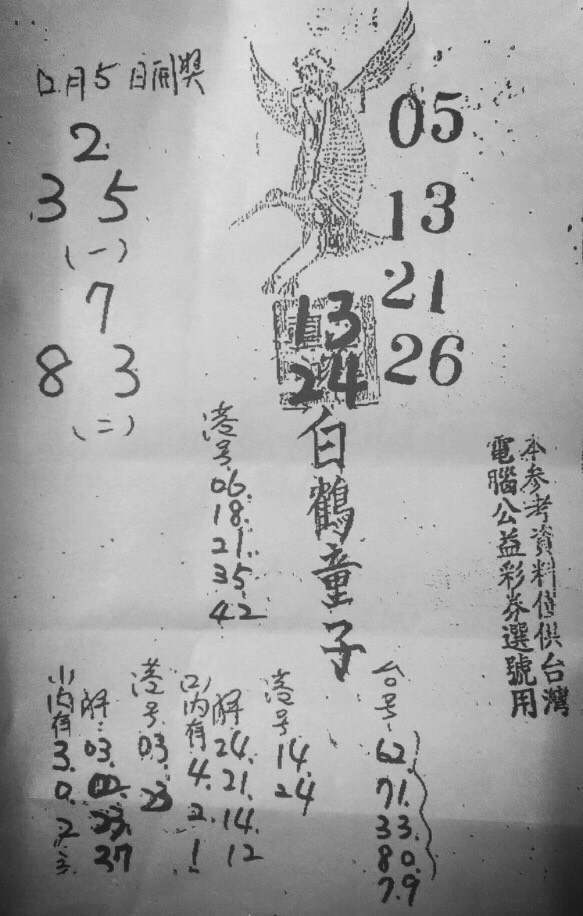 12月5日開獎
2
3 5
(一)
7
8 3
(二)
05
13
21
26
13
24
白鶴童子
本參考資料僅供台灣
電腦公益彩券選號用
港号
06.
18.
21.
35.
42
台号
62.
71.
33.
80.
79
港号
14
24
解
24.
21.
14.
12
(2)內有
4.
2.
1
港号
03.
23
解:
03.
02.
23.
37
內有
3.
0.
2